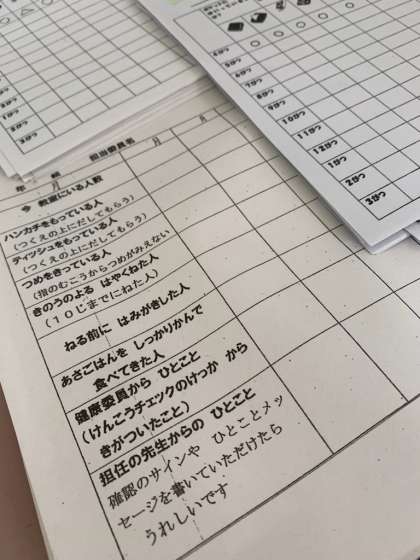 3がつ
年　組　担当委員名
月　月　月
今 教室にいる人数
ハンカチをもっている人
(つくえの上にだしてもらう)
ティッシュをもっている人
(つくえの上にだしてもらう)
つめをきっている人
(指のむこうからつめがみえない)
きのうのよる はやくねた人
(10じまでにねた人)
ねる前に はみがきした人
あさごはんを しっかりかんで
食べてきた人
健康委員から ひとこと
(けんこうチェックのけっか から
きがついたこと)
担任の先生からの ひとこと
確認のサインや ひとことメッ
セージを書いていただけたら
うれしいです
4がつ
5がつ
6がつ
7がつ
9がつ
10がつ
11がつ
12がつ
1がつ
2がつ
3がつ